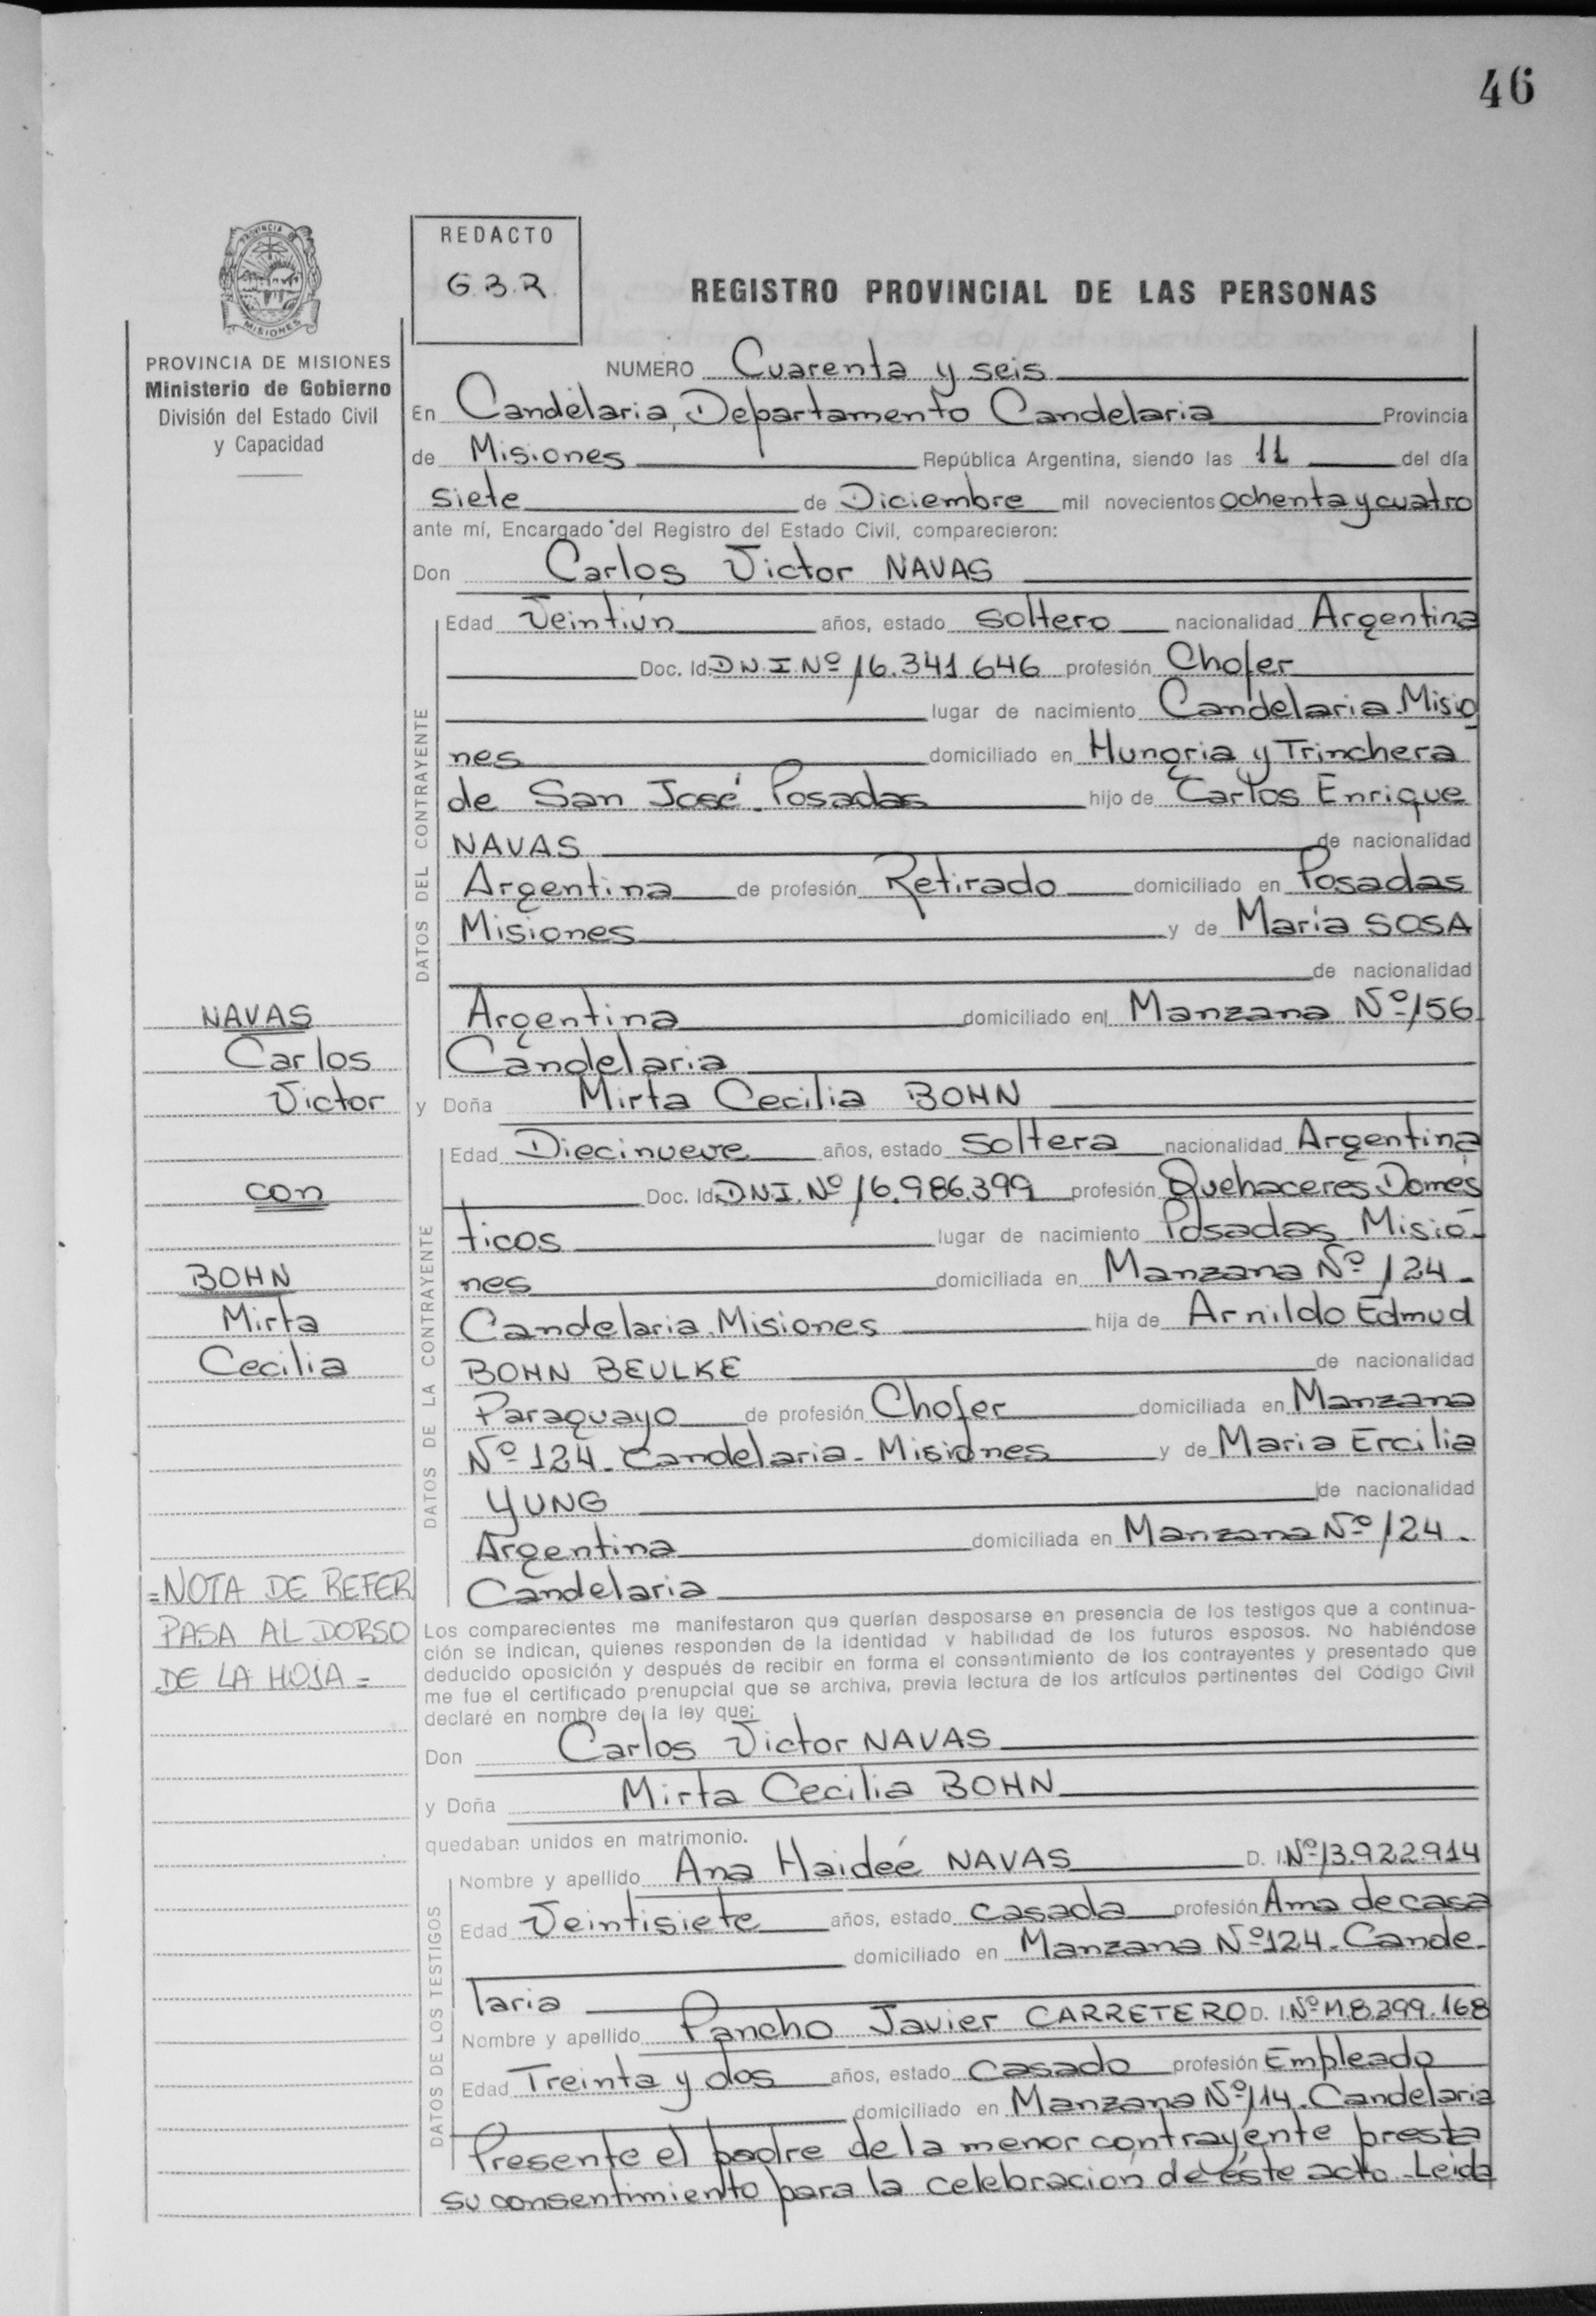 46
PROVINCIA DE
MISIONES
REDACTO
G.B.R.
REGISTRO PROVINCIAL DE LAS PERSONAS
PROVINCIA DE MISIONES
Ministerio de Gobierno
División del Estado Civil
y Capacidad
NUMERO Cuarenta y seis
En Candelaria, Departamento Candelaria Provincia
de Misiones República Argentina, siendo las 11 del día
siete de Diciembre mil novecientos ochenta y cuatro
ante mí, Encargado del Registro del Estado Civil, comparecieron:
Don Carlos Victor NAVAS
DATOS DEL CONTRAYENTE
Edad Veintiún años, estado soltero nacionalidad Argentina
Doc. Id. D.N.I. Nº 16.341.646 profesión Chofer
lugar de nacimiento Candelaria Misio
nes domiciliado en Hungria y Trinchera
de San José. Posadas hijo de Carlos Enrique
NAVAS de nacionalidad
Argentina de profesión Retirado domiciliado en Posadas
Misiones y de María SOSA
de nacionalidad
Argentina domiciliado en Manzana Nº 156
Candelaria
y Doña Mirta Cecilia BOHN
DATOS DE LA CONTRAYENTE
Edad Diecinueve años, estado soltera nacionalidad Argentina
Doc. Id. D.N.I. Nº 16.986.399 profesión Quehaceres Domés
ticos lugar de nacimiento Posadas Misio-
nes domiciliada en Manzana Nº 124-
Candelaria. Misiones hija de Arnildo Edmud
BOHN BEULKE de nacionalidad
Paraguayo de profesión Chofer domiciliada en Manzana
Nº 124- Candelaria- Misiones y de Maria Ercilia
YUNG de nacionalidad
Argentina domiciliada en Manzana Nº 124-
Candelaria
NAVAS
Carlos
Victor
con
BOHN
Mirta
Cecilia
=NOTA DE REFER
PASA AL DORSO
DE LA HOJA=
Los comparecientes me manifestaron que querían desposarse en presencia de los testigos que a continua-
ción se indican, quienes responden de la identidad y habilidad de los futuros esposos. No habiéndose
deducido oposición y después de recibir en forma el consentimiento de los contrayentes y presentado que
me fue el certificado prenupcial que se archiva, previa lectura de los artículos pertinentes del Código Civil
declaré en nombre de la ley que:
Don Carlos Victor NAVAS
y Doña Mirta Cecilia BOHN
quedaban unidos en matrimonio.
DATOS DE LOS TESTIGOS
Nombre y apellido Ana Haideé NAVAS D. I. Nº 13.922.914
Edad Veintisiete años, estado casada profesión Ama de casa
domiciliado en Manzana Nº 124- Cande-
laria
Nombre y apellido Pancho Javier CARRETERO D. I. Nº M.8.399.168
Edad Treinta y dos años, estado casado profesión Empleado
domiciliado en Manzana Nº 114. Candelaria
Presente el padre de la menor contrayente presta
su consentimiento para la celebración de éste acto. Leida